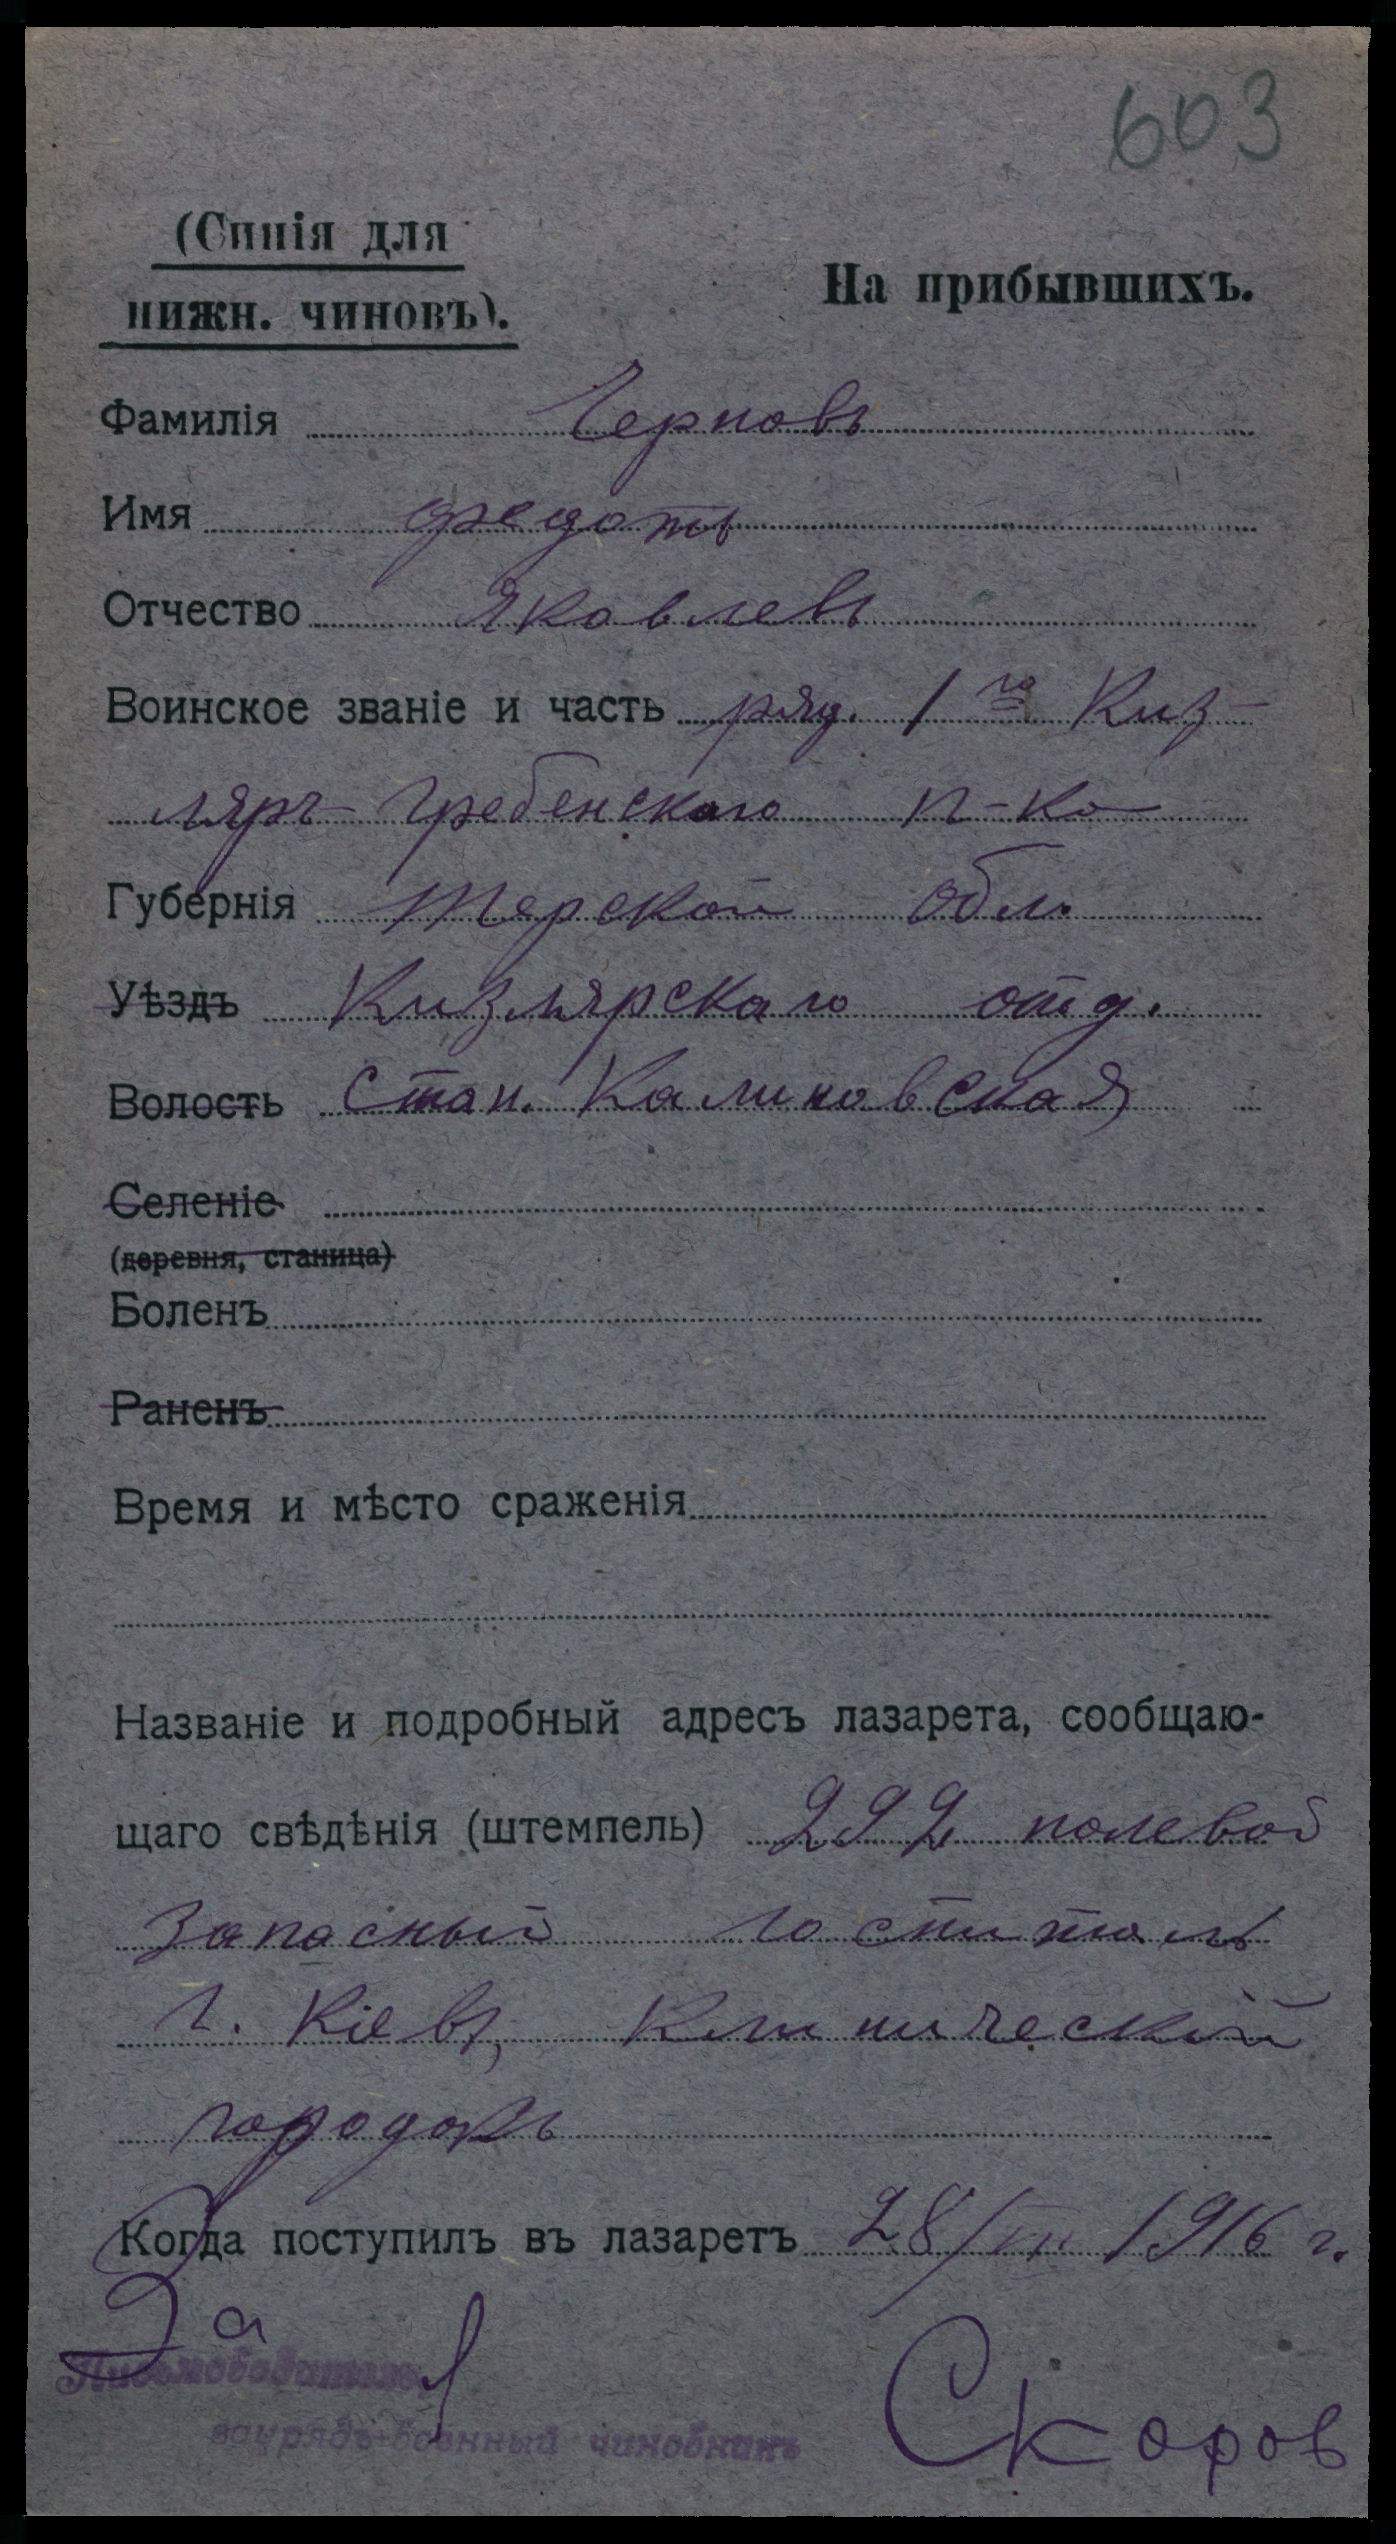 603
(Синія для
нижн. чиновъ).
На прибывшихъ.
Фамилія Черновъ
Имя Федотъ
Отчество Яковлевъ
Воинское званіе и часть ряд. 1го Киз-
ляръ-Гребенскаго п-ка
Губернія Терской обл.
Уѣздъ Кизлярскаго отд.
Волость Стан. Калиновская
Селеніе
(деревня, станица)
Боленъ
Раненъ
Время и мѣсто сраженія
Названіе и подробный адресъ лазарета, сообщаю-
щаго свѣдѣнія (штемпель) 292 полевой
запасный госпиталь
г. Кіевъ, Клиническій
городокъ
Когда поступилъ въ лазаретъ 28/VII 1916 г.
За
Письмоводитель
заурядъ-военный чиновникъ
Скоров